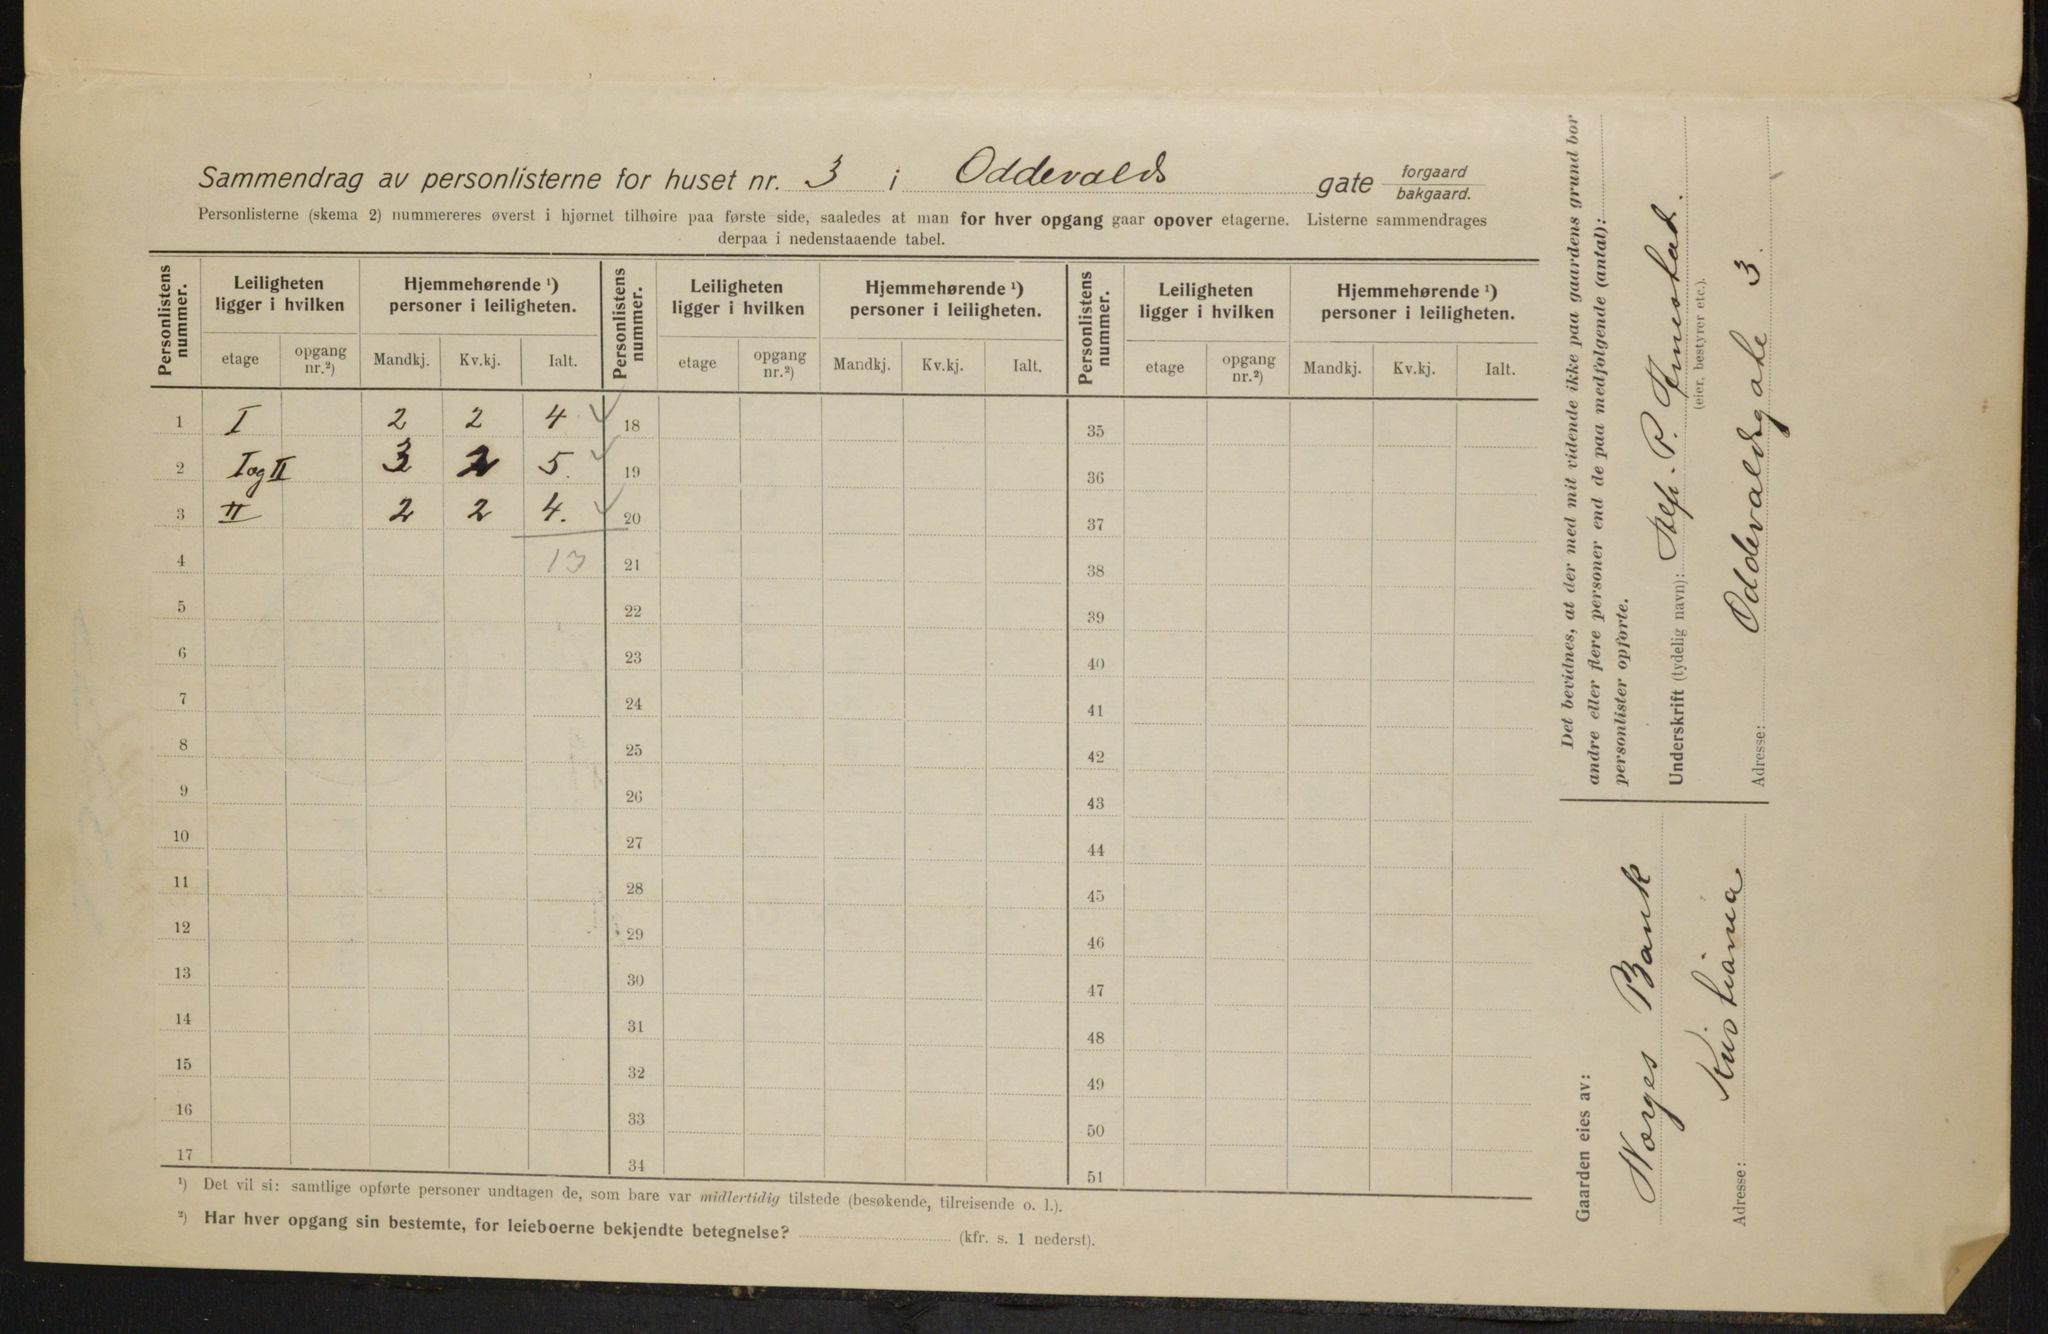 Sammendrag av personlisterne for huset nr. 3 i Oddevalds gate forgaard bakgaard.
Personlisterne (skema 2) nummereres øverst i hjørnet tilhøire paa første side, saaledes at man for hver opgang gaar opover etagerne. Listerne sammendrages
derpaa i nedenstaaende tabel.
Personlistens nummer. Leiligheten ligger i hvilken Hjemmehørende ¹) personer i leiligheten. Personlistens nummer. Leiligheten ligger i hvilken Hjemmehørende ¹) personer i leiligheten. Personlistens nummer. Leiligheten ligger i hvilken Hjemmehørende ¹) personer i leiligheten.
etage opgang nr.²) Mandkj. Kv.kj. Ialt. etage opgang nr.²) Mandkj. Kv.kj. Ialt. etage opgang nr.²) Mandkj. Kv.kj. Ialt.
1 I 2 2 4 18 35
2 I og II 3 2 5. 19 36
3 II 2 2 4. 20 37
4 13 21 38
5 22 39
6 23 40
7 24 41
8 25 42
9 26 43
10 27 44
11 28 45
12 29 46
13 30 47
14 31 48
15 32 49
16 33 50
17 34 51
¹) Det vil si: samtlige opførte personer undtagen de, som bare var midlertidig tilstede (besøkende, tilreisende o. l.).
²) Har hver opgang sin bestemte, for leieboerne bekjendte betegnelse? (kfr. s. 1 nederst).
Det bevidnes, at der med mit vidende ikke paa gaardens grund bor
andre eller flere personer end de paa medfølgende (antal):
personlister opførte.
Underskrift (tydelig navn): P.
(eier, bestyrer etc.).
Adresse: Oddevaldsgate 3.
Gaarden eies av:
Norges Bank
Adresse: Kristiania